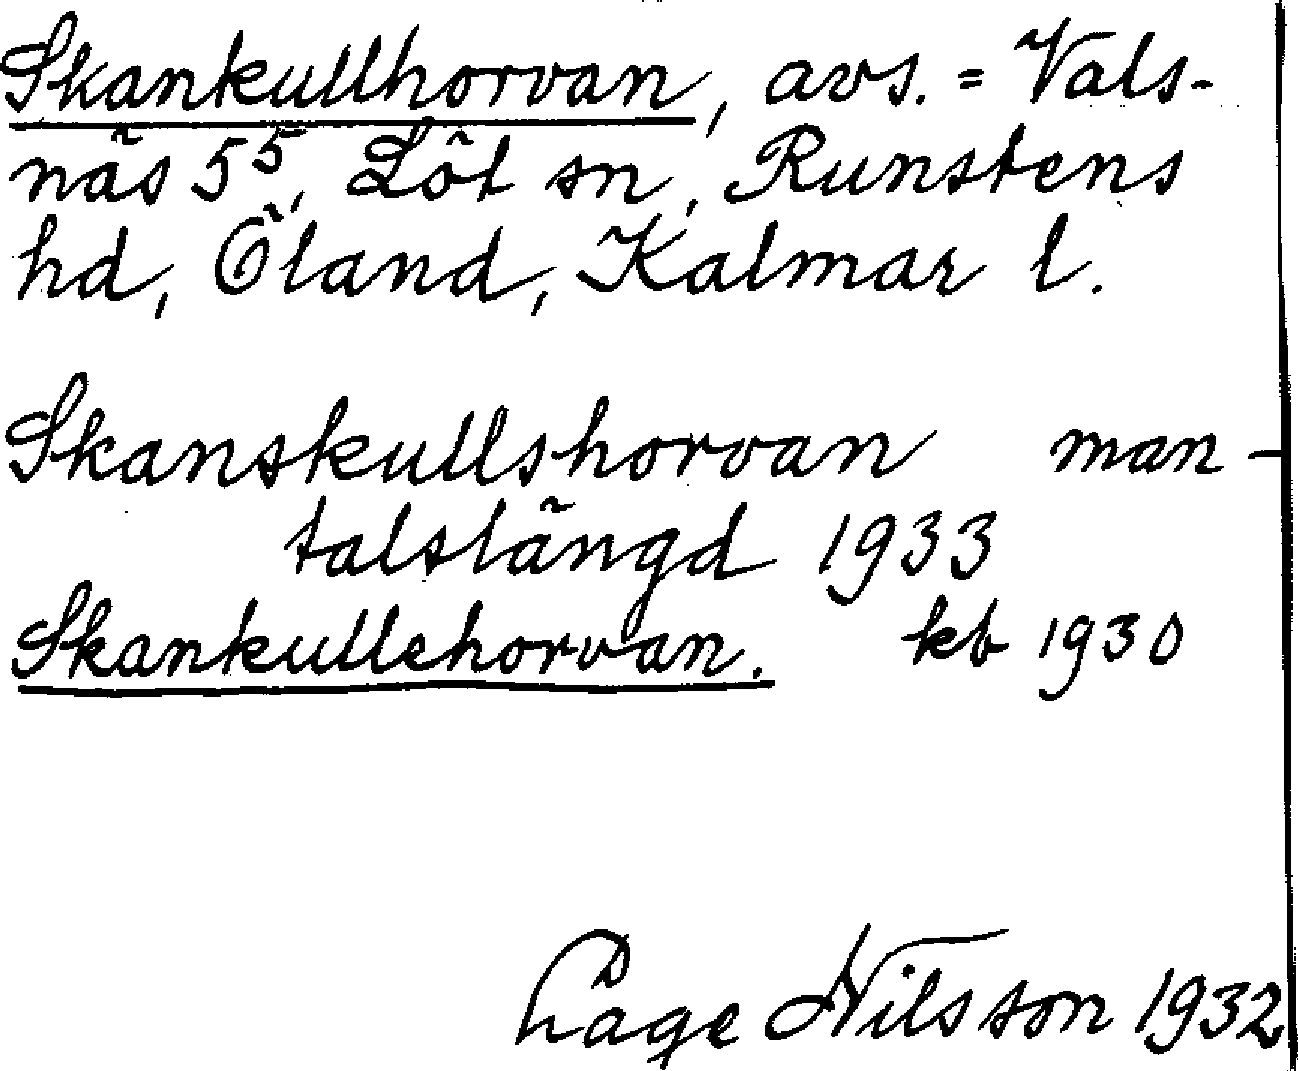 Skankullhorvan, avs. = Vals-
näs 5⁵, Löt sn, Runstens
hd, Öland, Kalmar l.
Skanskullshorvan man-
talslängd 1933
Skankullehorvan. kb 1930
Låge Nilsson 1932